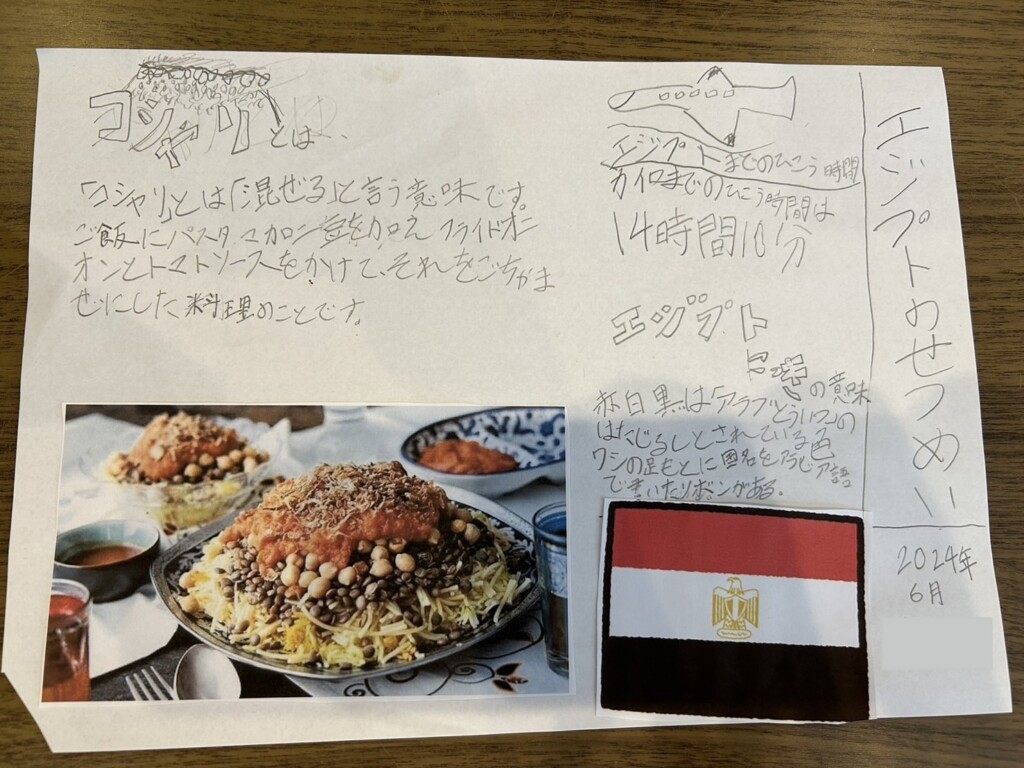 エジプトのせつめい
2024年
6月
コシャリとは、
「コシャリ」とは「混ぜる」と言う意味です。
ご飯にパスタマカロニ豆を加えフライドオニ
オンとトマトソースをかけて、それをごちゃま
ぜにした料理のことです。
エジプトまでのひこう時間
カイロまでのひこう時間は
14時間10分
エジプト
の意味
赤白黒は「アラブどうい」の
はたじるしとされている色
ワシの足もとに国名をアラビア語
でかいたリボンがある。